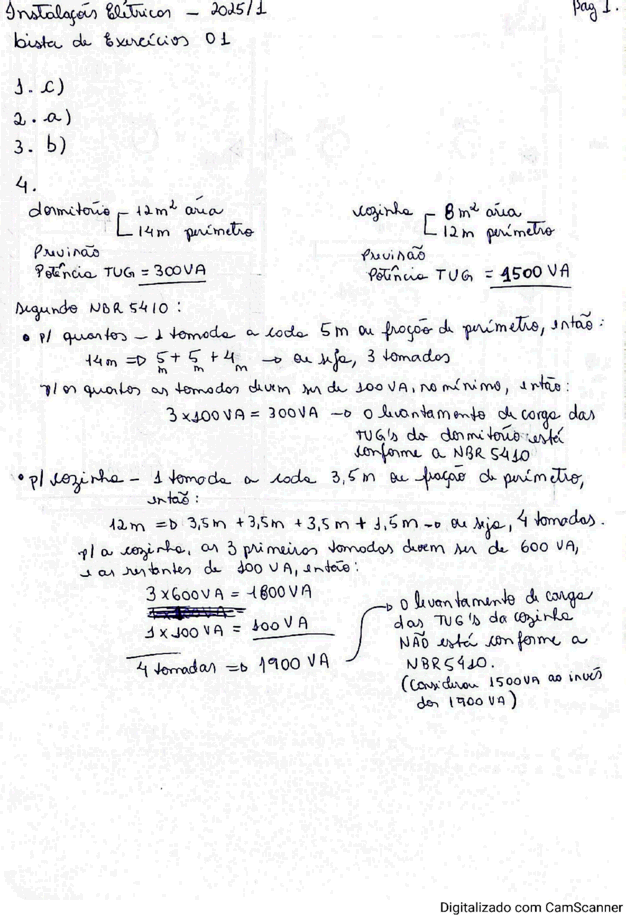 Instalações Elétricas - 2025/1
pág 1.
Lista de Exercícios 01
1. c)
2. a)
3. b)
4.
dormitório 12m² área
14m perímetro
Previsão
Potência TUG = 300VA
cozinha 8m² área
12m perímetro
Previsão
Potência TUG = 1500 VA
segundo NBR 5410:
• p/ quartos - 1 tomada a cada 5m ou fração de perímetro, então:
14m => 5m + 5m + 4m → ou seja, 3 tomadas
p/ os quartos as tomadas devem ser de 100VA, no mínimo, então:
3 x 100VA = 300VA → o levantamento de carga das
TUG's do dormitório está
conforme a NBR 5410
• p/ cozinha - 1 tomada a cada 3,5m ou fração de perímetro,
então:
12m => 3,5m + 3,5m + 3,5m + 1,5m → ou seja, 4 tomadas.
p/ a cozinha, as 3 primeiras tomadas devem ser de 600 VA,
e as restantes de 100 VA, então:
3 x 600VA = 1800VA
1 x 100 VA = 100 VA
4 tomadas => 1900 VA
→ o levantamento de carga
das TUG's da cozinha
NÃO está conforme a
NBR5410.
(Considerou 1500VA ao invés
dos 1900 VA)
Digitalizado com CamScanner